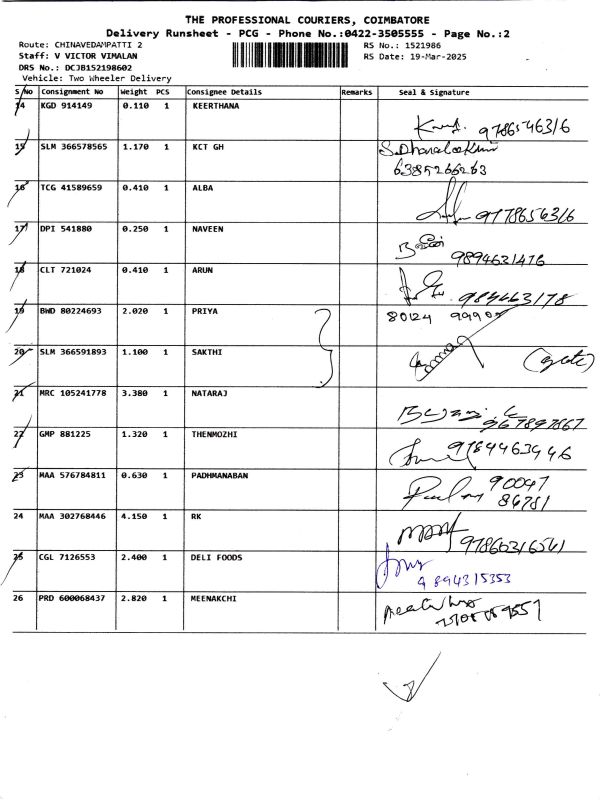 THE PROFESSIONAL COURIERS, COIMBATORE
Delivery Runsheet - PCG - Phone No.:0422-3505555 - Page No.:2
Route: CHINAVEDAMPATTI 2
RS No.: 1521986
Staff: V VICTOR VIMALAN
RS Date: 19-Mar-2025
DRS No.: DCJB152198602
Vehicle: Two Wheeler Delivery
S/No Consignment No Weight PCS Consignee Details Remarks Seal & Signature
14 KGD 914149 0.110 1 KEERTHANA
9786546316
15 SLM 366578565 1.170 1 KCT GH S.Dhanalakshmi
6385266263
16 TCG 41589659 0.410 1 ALBA
9778656316
17 DPI 541880 0.250 1 NAVEEN நவீன்
9894631476
18 CLT 721024 0.410 1 ARUN
984463178
19 BWD 80224693 2.020 1 PRIYA 80124 99905
20 SLM 366591893 1.100 1 SAKTHI (gate)
21 MRC 105241778 3.380 1 NATARAJ
967897867
22 GMP 881225 1.320 1 THENMOZHI 9784463446
23 MAA 576784811 0.630 1 PADHMANABAN 90047
86781
24 MAA 302768446 4.150 1 RK
9786316561
25 CGL 7126553 2.400 1 DELI FOODS
9894315353
26 PRD 600068437 2.820 1 MEENAKCHI